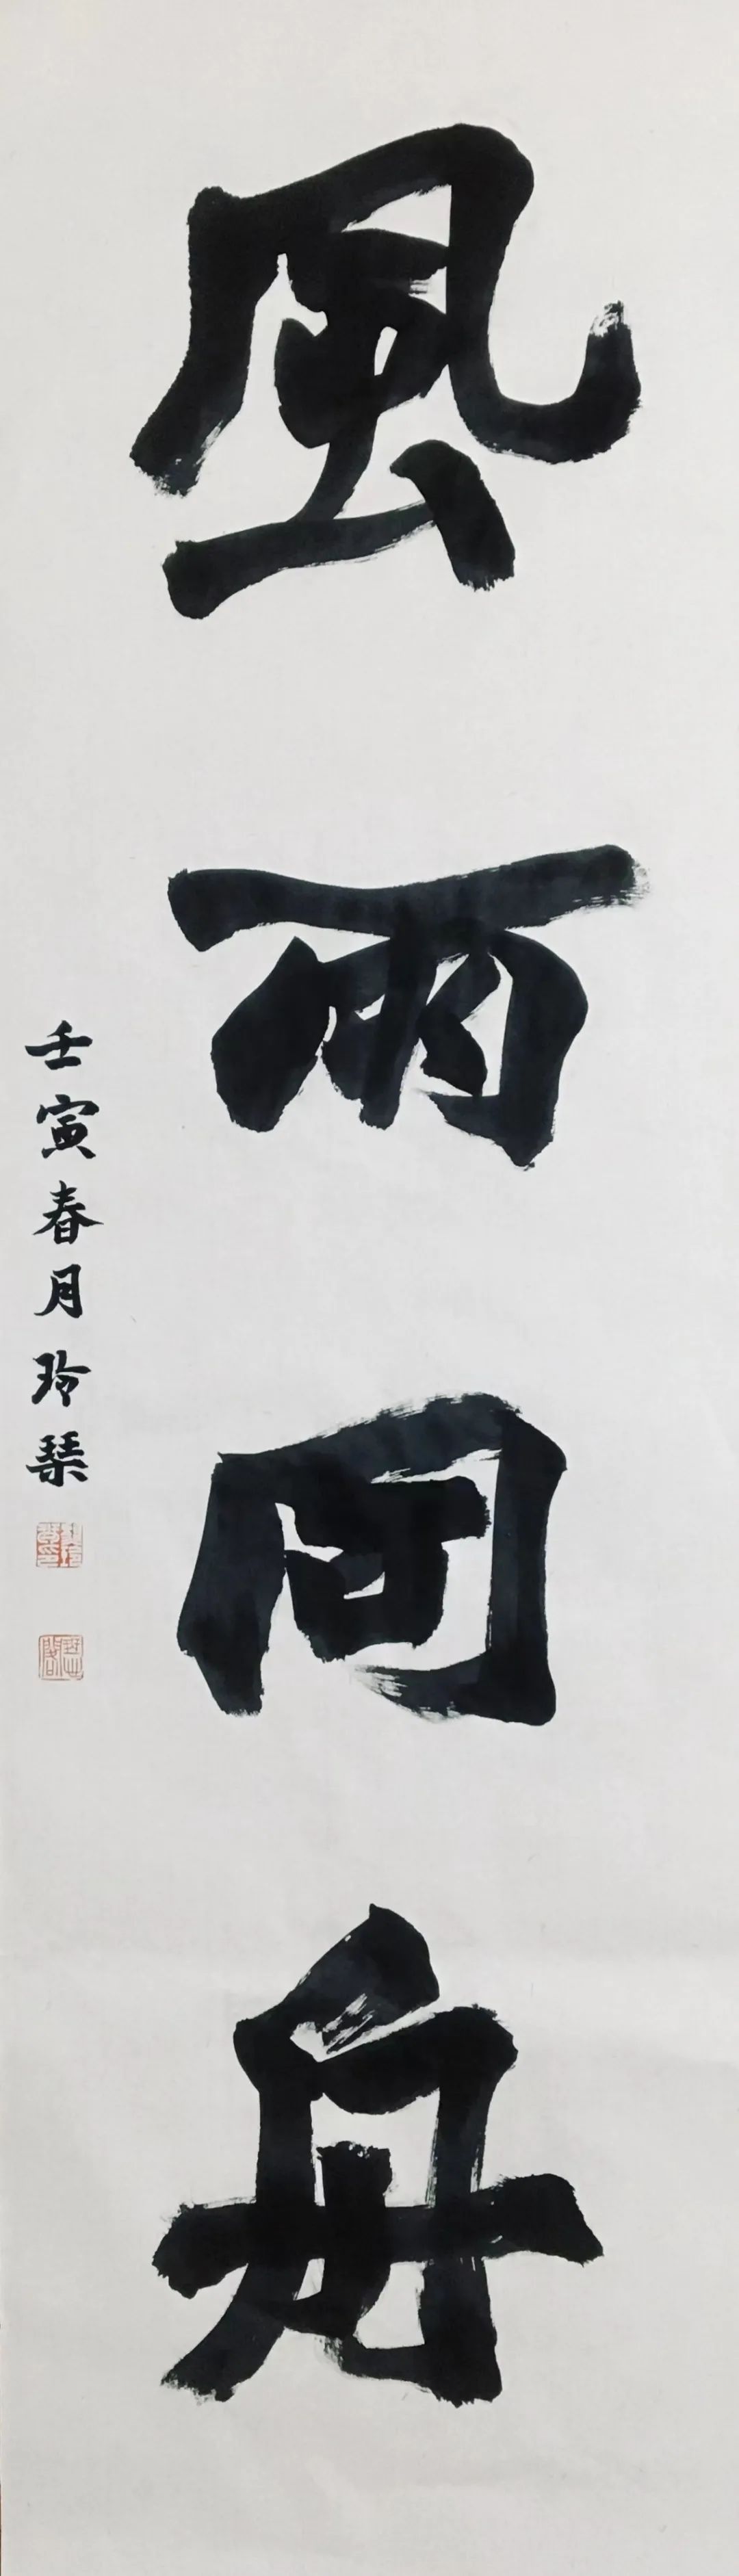 風雨同舟
壬寅春月玲琹